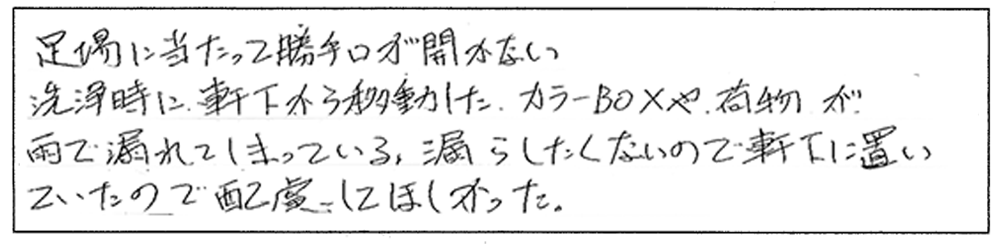 足場に当たって勝手口が開かない
洗浄時に、軒下から移動した、カラーBOXや、荷物が
雨で漏れてしまっている、漏らしたくないので軒下に置い
ていたので配慮してほしかった。